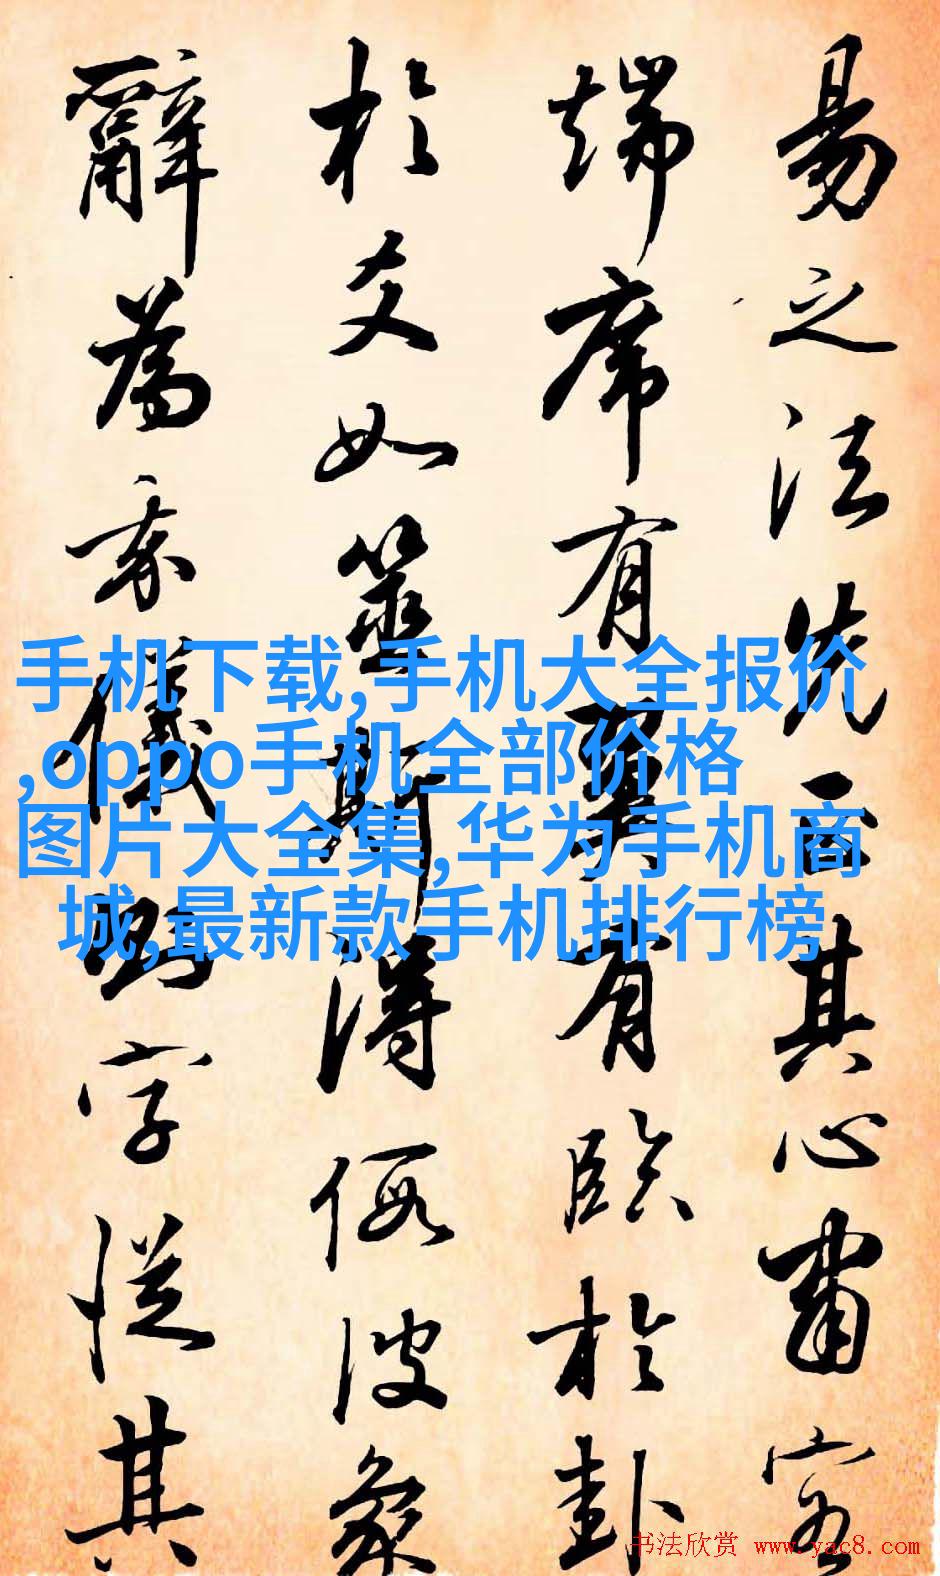 易之法先正其心肅容
端席有翼有臨於卦
於爻如筮斯得假彼象
辭為我儀則字從其
手机下载,手机大全报价
,oppo手机全部价格
图片大全集,华为手机商
城,最新款手机排行榜
书法欣赏 www.yac8.com